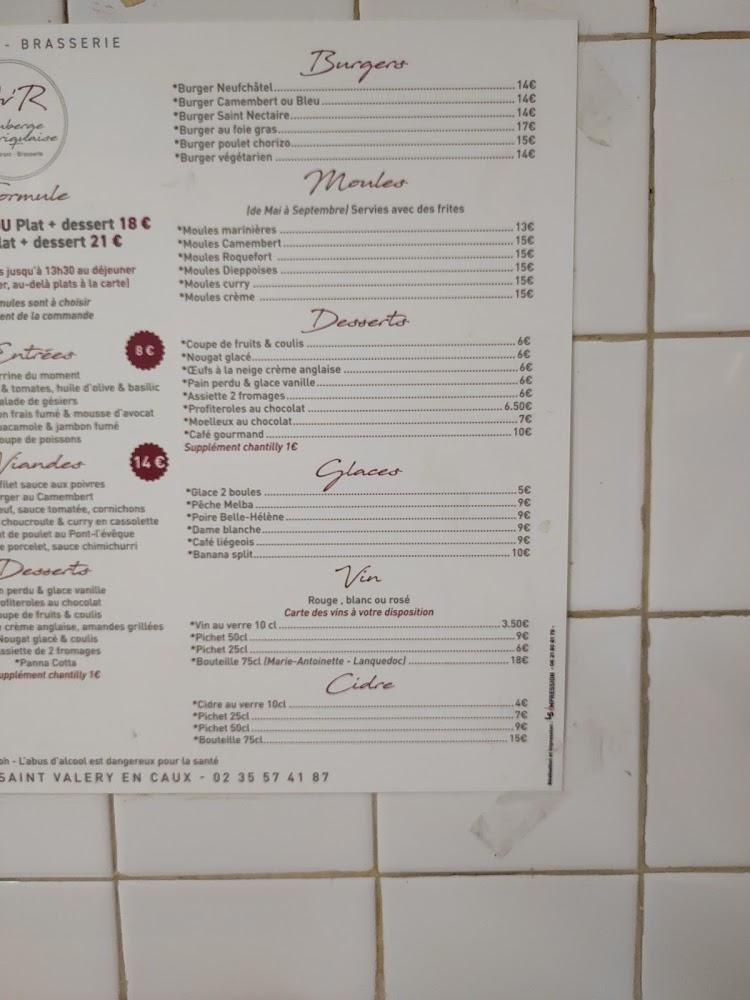 - BRASSERIE
Formule
U Plat + dessert 18 €
lat + dessert 21 €
s jusqu'à 13h30 au déjeuner
er, au-delà plats à la carte)
mules sont à choisir
ent de la commande
Entrées
8 €
rrine du moment
& tomates, huile d'olive & basilic
alade de gésiers
on frais fumé & mousse d'avocat
uacamole & jambon fumé
oupe de poissons
Viandes
14 €
filet sauce aux poivres
rger au Camembert
euf, sauce tomatée, cornichons
choucroute & curry en cassolette
t de poulet au Pont-l'évêque
e porcelet, sauce chimichurri
Desserts
n perdu & glace vanille
ofiteroles au chocolat
upe de fruits & coulis
crème anglaise, amandes grillées
Nougat glacé & coulis
ssiette de 2 fromages
*Panna Cotta
upplément chantilly 1€
Burgers
*Burger Neufchâtel 14€
*Burger Camembert ou Bleu 14€
*Burger Saint Nectaire 14€
*Burger au foie gras 17€
*Burger poulet chorizo 15€
*Burger végétarien 14€
Moules
(de Mai à Septembre) Servies avec des frites
*Moules marinières 13€
*Moules Camembert 15€
*Moules Roquefort 15€
*Moules Dieppoises 15€
*Moules curry 15€
*Moules crème 15€
Desserts
*Coupe de fruits & coulis 6€
*Nougat glacé 6€
*Œufs à la neige crème anglaise 6€
*Pain perdu & glace vanille 6€
*Assiette 2 fromages 6€
*Profiteroles au chocolat 6.50€
*Moelleux au chocolat 7€
*Café gourmand 10€
Supplément chantilly 1€
Glaces
*Glace 2 boules 5€
*Pêche Melba 9€
*Poire Belle-Hélène 9€
*Dame blanche 9€
*Café liégeois 9€
*Banana split 10€
Vin
Rouge , blanc ou rosé
Carte des vins à votre disposition
*Vin au verre 10 cl 3.50€
*Pichet 50cl 9€
*Pichet 25cl 6€
*Bouteille 75cl (Marie-Antoinette - Languedoc) 18€
Cidre
*Cidre au verre 10cl 4€
*Pichet 25cl 7€
*Pichet 50cl 9€
*Bouteille 75cl 15€
oh - L'abus d'alcool est dangereux pour la santé
SAINT VALERY EN CAUX - 02 35 57 41 87